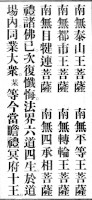 南無泰山王菩薩　南無平等王菩薩
南無都市王菩薩　南無轉輪王菩薩
南無目犍連菩薩　南無四承相菩薩
禮諸佛已次復懺悔法界六道四生於道
場內同業大衆某等今當瞻禮冥府十王